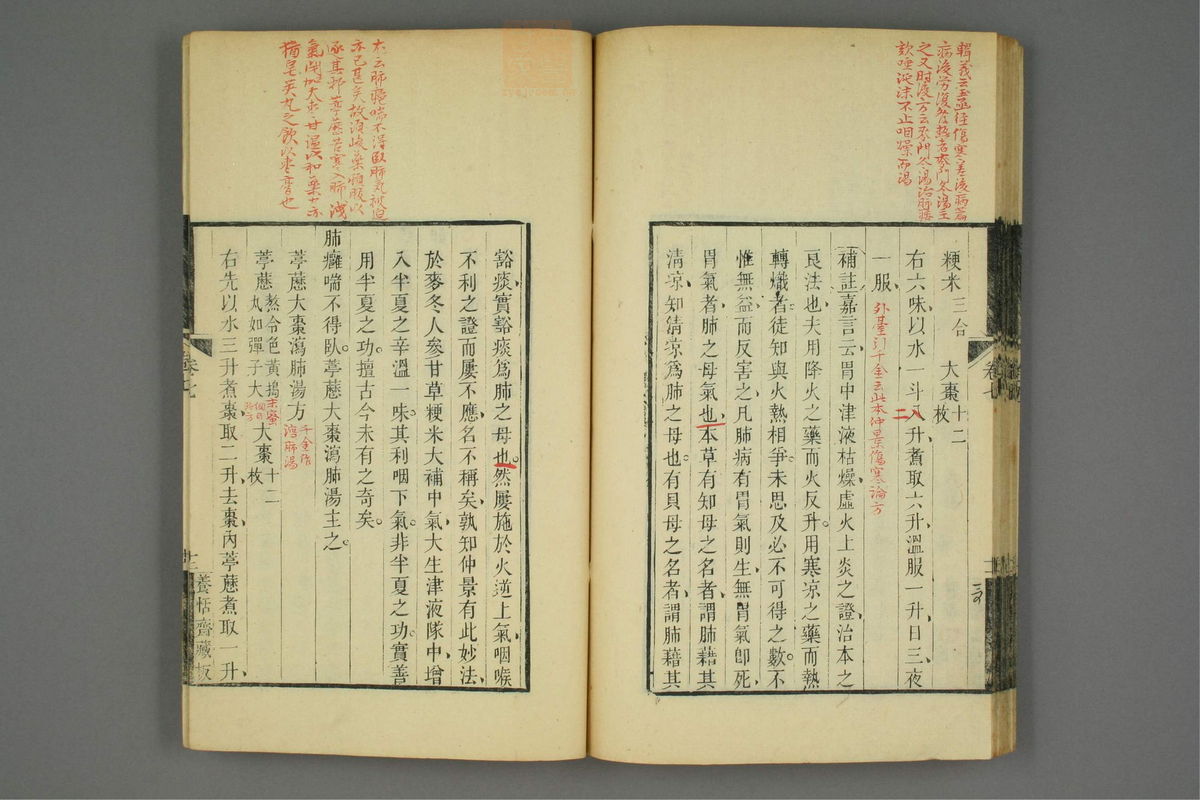 輯義云玉函經傷寒差後病篇
病後勞復發熱者麥門冬湯主
之又肘後方云麥門冬湯治肺痿
欬唾涎沫不止咽燥而渴
粳米三合　大棗十二枚
右六味以水一斗二升煮取六升溫服一升日三夜
一服
外臺引千金云此本仲景傷寒論方
補註嘉言云胃中津液枯燥虛火上炎之證治本之
良法也夫用降火之藥而火反升用寒凉之藥而熱
轉熾者徒知與火熱相爭未思及必不可得之數不
惟無益而反害之凡肺病有胃氣則生無胃氣卽死
胃氣者肺之母氣也本草有知母之名者謂肺藉其
淸凉知淸凉爲肺之母也有貝母之名者謂肺藉其
卷七
不云肺癰喘不得臥肺氣被迫
亦已甚矣故須峻藥頓服以
逐其邪葶藶苦寒入肺洩
氣閉加大棗甘溫以和藥力亦
猶皂莢丸之飮以棗膏也
豁痰實豁痰爲肺之母也然屢施於火逆上氣咽喉
不利之證而屢不應名不稱矣孰知仲景有此妙法
於麥冬人參甘草粳米大補中氣大生津液隊中增
入半夏之辛溫一味其利咽下氣非半夏之功實善
用半夏之功擅古今未有之奇矣
肺癰喘不得臥葶藶大棗瀉肺湯主之
葶藶大棗瀉肺湯方
千金
瀉肺湯
葶藶熬令色黃搗丸如彈子大　大棗十二枚
末蜜
右先以水三升煮棗取二升去棗內葶藶煮取一升
卷七
養恬齋藏板